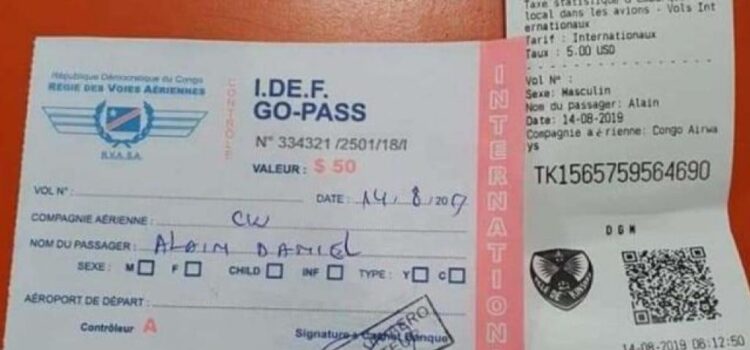 République Démocratique du Congo
RÉGIE DES VOIES AÉRIENNES
R.V.A. S.A.
CONTROLE
I.DE.F.
GO-PASS
N° 334321 /2501/18/I
VALEUR : $ 50
VOL N° :
DATE : 14/8/2019
COMPAGNIE AÉRIENNE : CW
NOM DU PASSAGER : ALAIN DANIEL
SEXE : M F CHILD INF TYPE : Y C
AÉROPORT DE DÉPART :
Contrôleur A
Signature
Banque
INTERNATION
local dans les avions - Vols Int
ernationaux
Tarif : Internationaux
Taux : 5.00 USD
Vol N° :
Sexe: Masculin
Nom du passager: Alain
Date: 14-08-2019
Compagnie aérienne: Congo Airwa
ys
TK1565759564690
DGM
14-08-2019 06:12:50